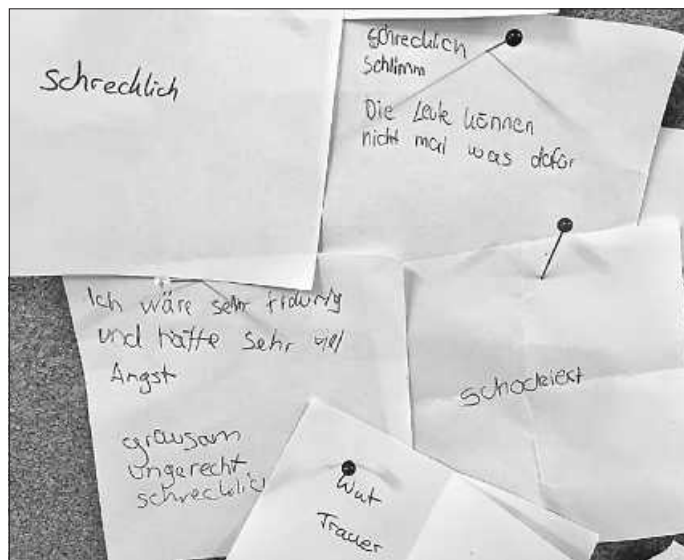 schrecklich
schrecklich
schlimm
Die Leute können
nicht mal was dafür
Ich wäre sehr traurig
und hätte sehr viel
Angst
grausam
ungerecht
schrecklich
schockiert
Wut
Trauer